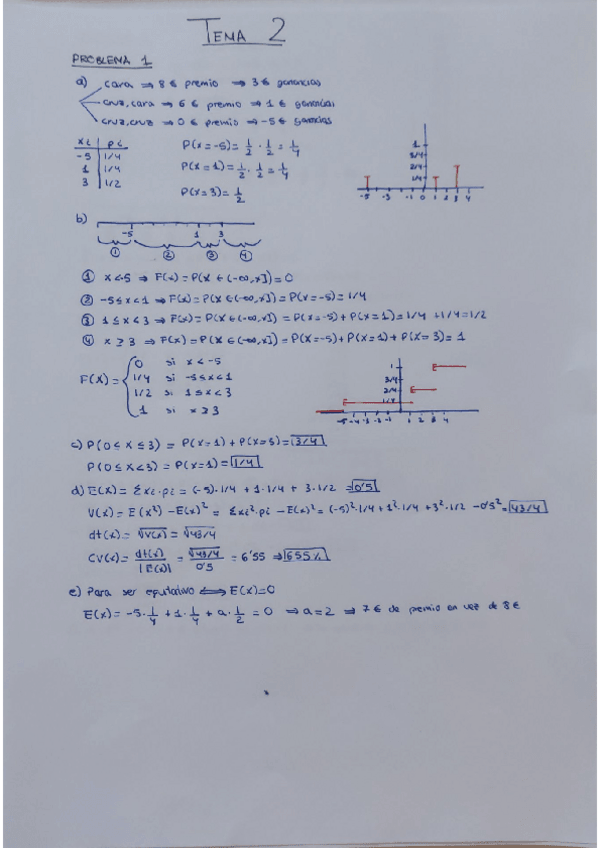 TEMA 2
PROBLEMA 1
a) cara ⇒ 8 € premio ⇒ 3 € ganancias
cruz, cara ⇒ 6 € premio ⇒ 1 € ganancias
cruz, cruz ⇒ 0 € premio ⇒ -5 € ganancias
xi | pi
-5 | 1/4
1 | 1/4
3 | 1/2
P(X=-5) = 1/2 · 1/2 = 1/4
P(X=1) = 1/2 · 1/2 = 1/4
P(X=3) = 1/2
1
3/4
2/4
1/4
-5 -3 -1 0 1 2 3 4
b)
-5 1 3
① ② ③ ④
① x<-5 ⇒ F(x) = P(X ∈ (-∞,x]) = 0
② -5≤x<1 ⇒ F(x) = P(X ∈ (-∞,x]) = P(X=-5) = 1/4
③ 1≤x<3 ⇒ F(x) = P(X ∈ (-∞,x]) = P(X=-5) + P(X=1) = 1/4 + 1/4 = 1/2
④ x≥3 ⇒ F(x) = P(X ∈ (-∞,x]) = P(X=-5) + P(X=1) + P(X=3) = 1
F(X) = { 0 si x<-5
1/4 si -5≤x<1
1/2 si 1≤x<3
1 si x≥3
1
3/4
2/4
1/4
-5 -4 -3 -2 -1 1 2 3 4
c) P(0≤x≤3) = P(X=1) + P(X=3) = 3/4
P(0≤x<3) = P(X=1) = 1/4
d) E(X) = Σxi·pi = (-5)·1/4 + 1·1/4 + 3·1/2 = 0'5
V(X) = E(X²) - E(X)² = Σxi²·pi - E(x)² = (-5)²·1/4 + 1²·1/4 + 3²·1/2 - 0'5² = 43/4
dt(x) = √V(x) = √43/4
CV(x) = dt(x)/|E(x)| = √43/4/0'5 = 6'55 ⇒ 655%
e) Para ser equitativo ⟺ E(X)=0
E(X) = -5·1/4 + 1·1/4 + a·1/2 = 0 ⇒ a=2 ⇒ 7 € de premio en vez de 8 €